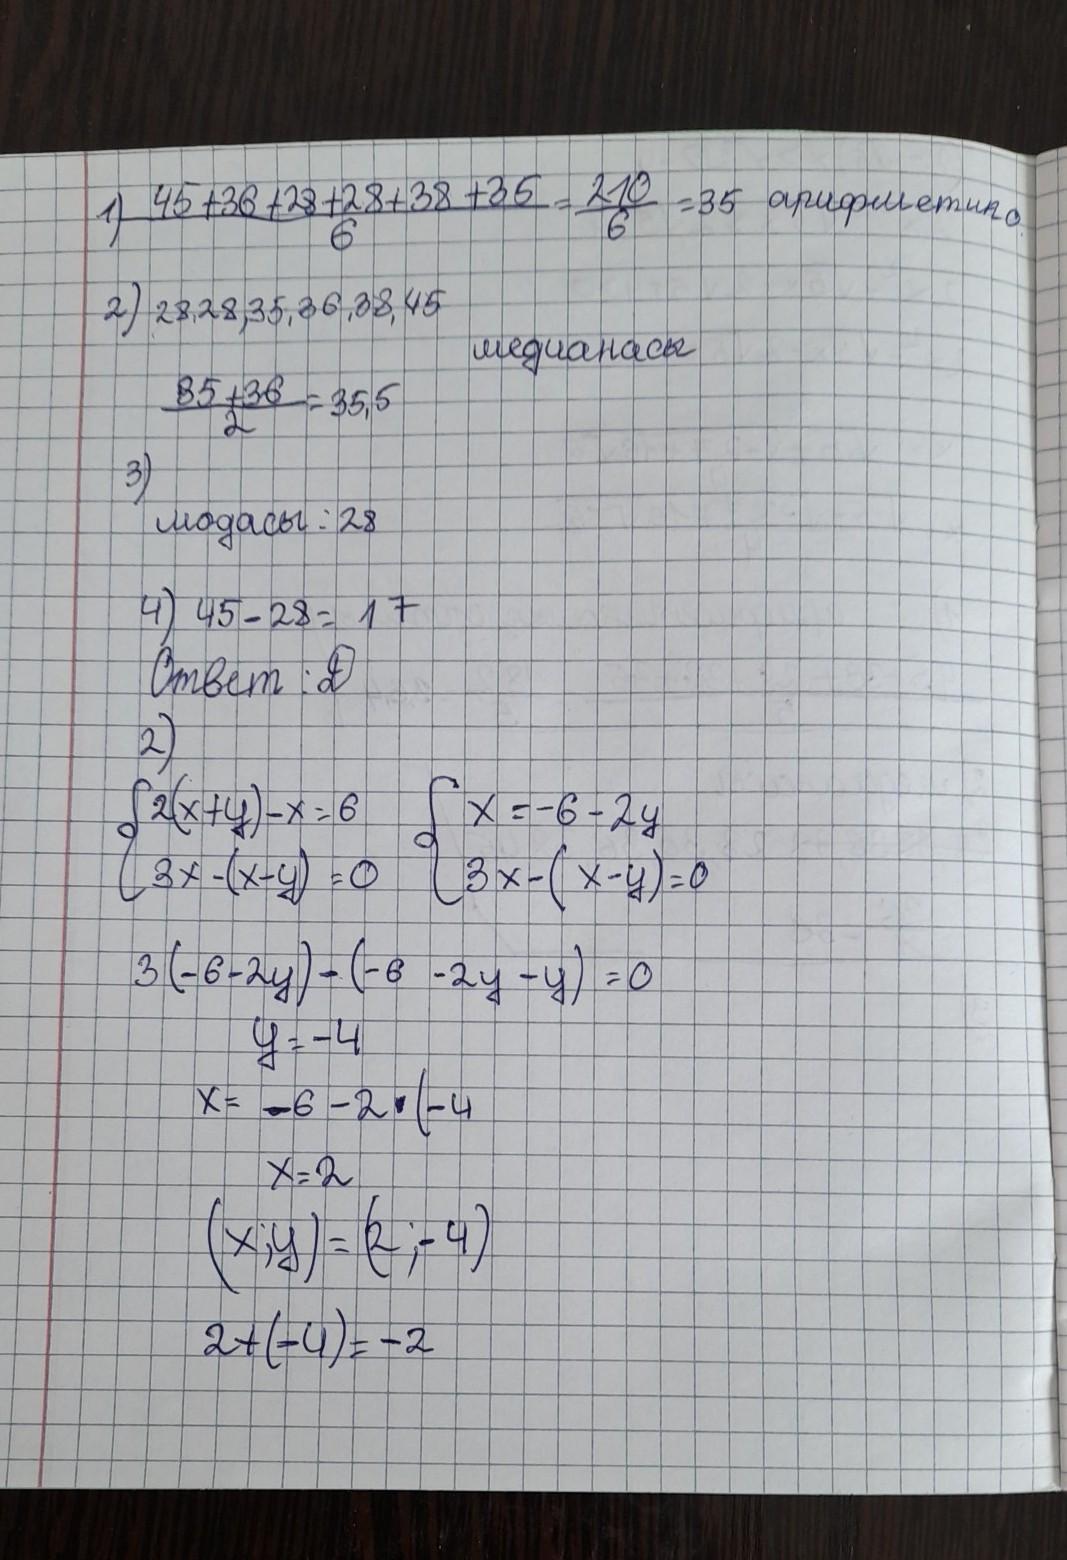 1) 45+36+28+28+38+35 / 6 = 210 / 6 = 35 арифметика
2) 28,28,35,36,38,45
медианасы
35+36 / 2 = 35,5
3)
модасы: 28
4) 45-28= 17
Ответ: D
2)
{ 2(x+y)-x=6 { x=-6-2y
3x-(x-y)=0 3x-(x-y)=0
3(-6-2y)-(-6 -2y-y)=0
y=-4
x= -6-2·(-4
x=2
(x;y)=(2;-4)
2+(-4)=-2